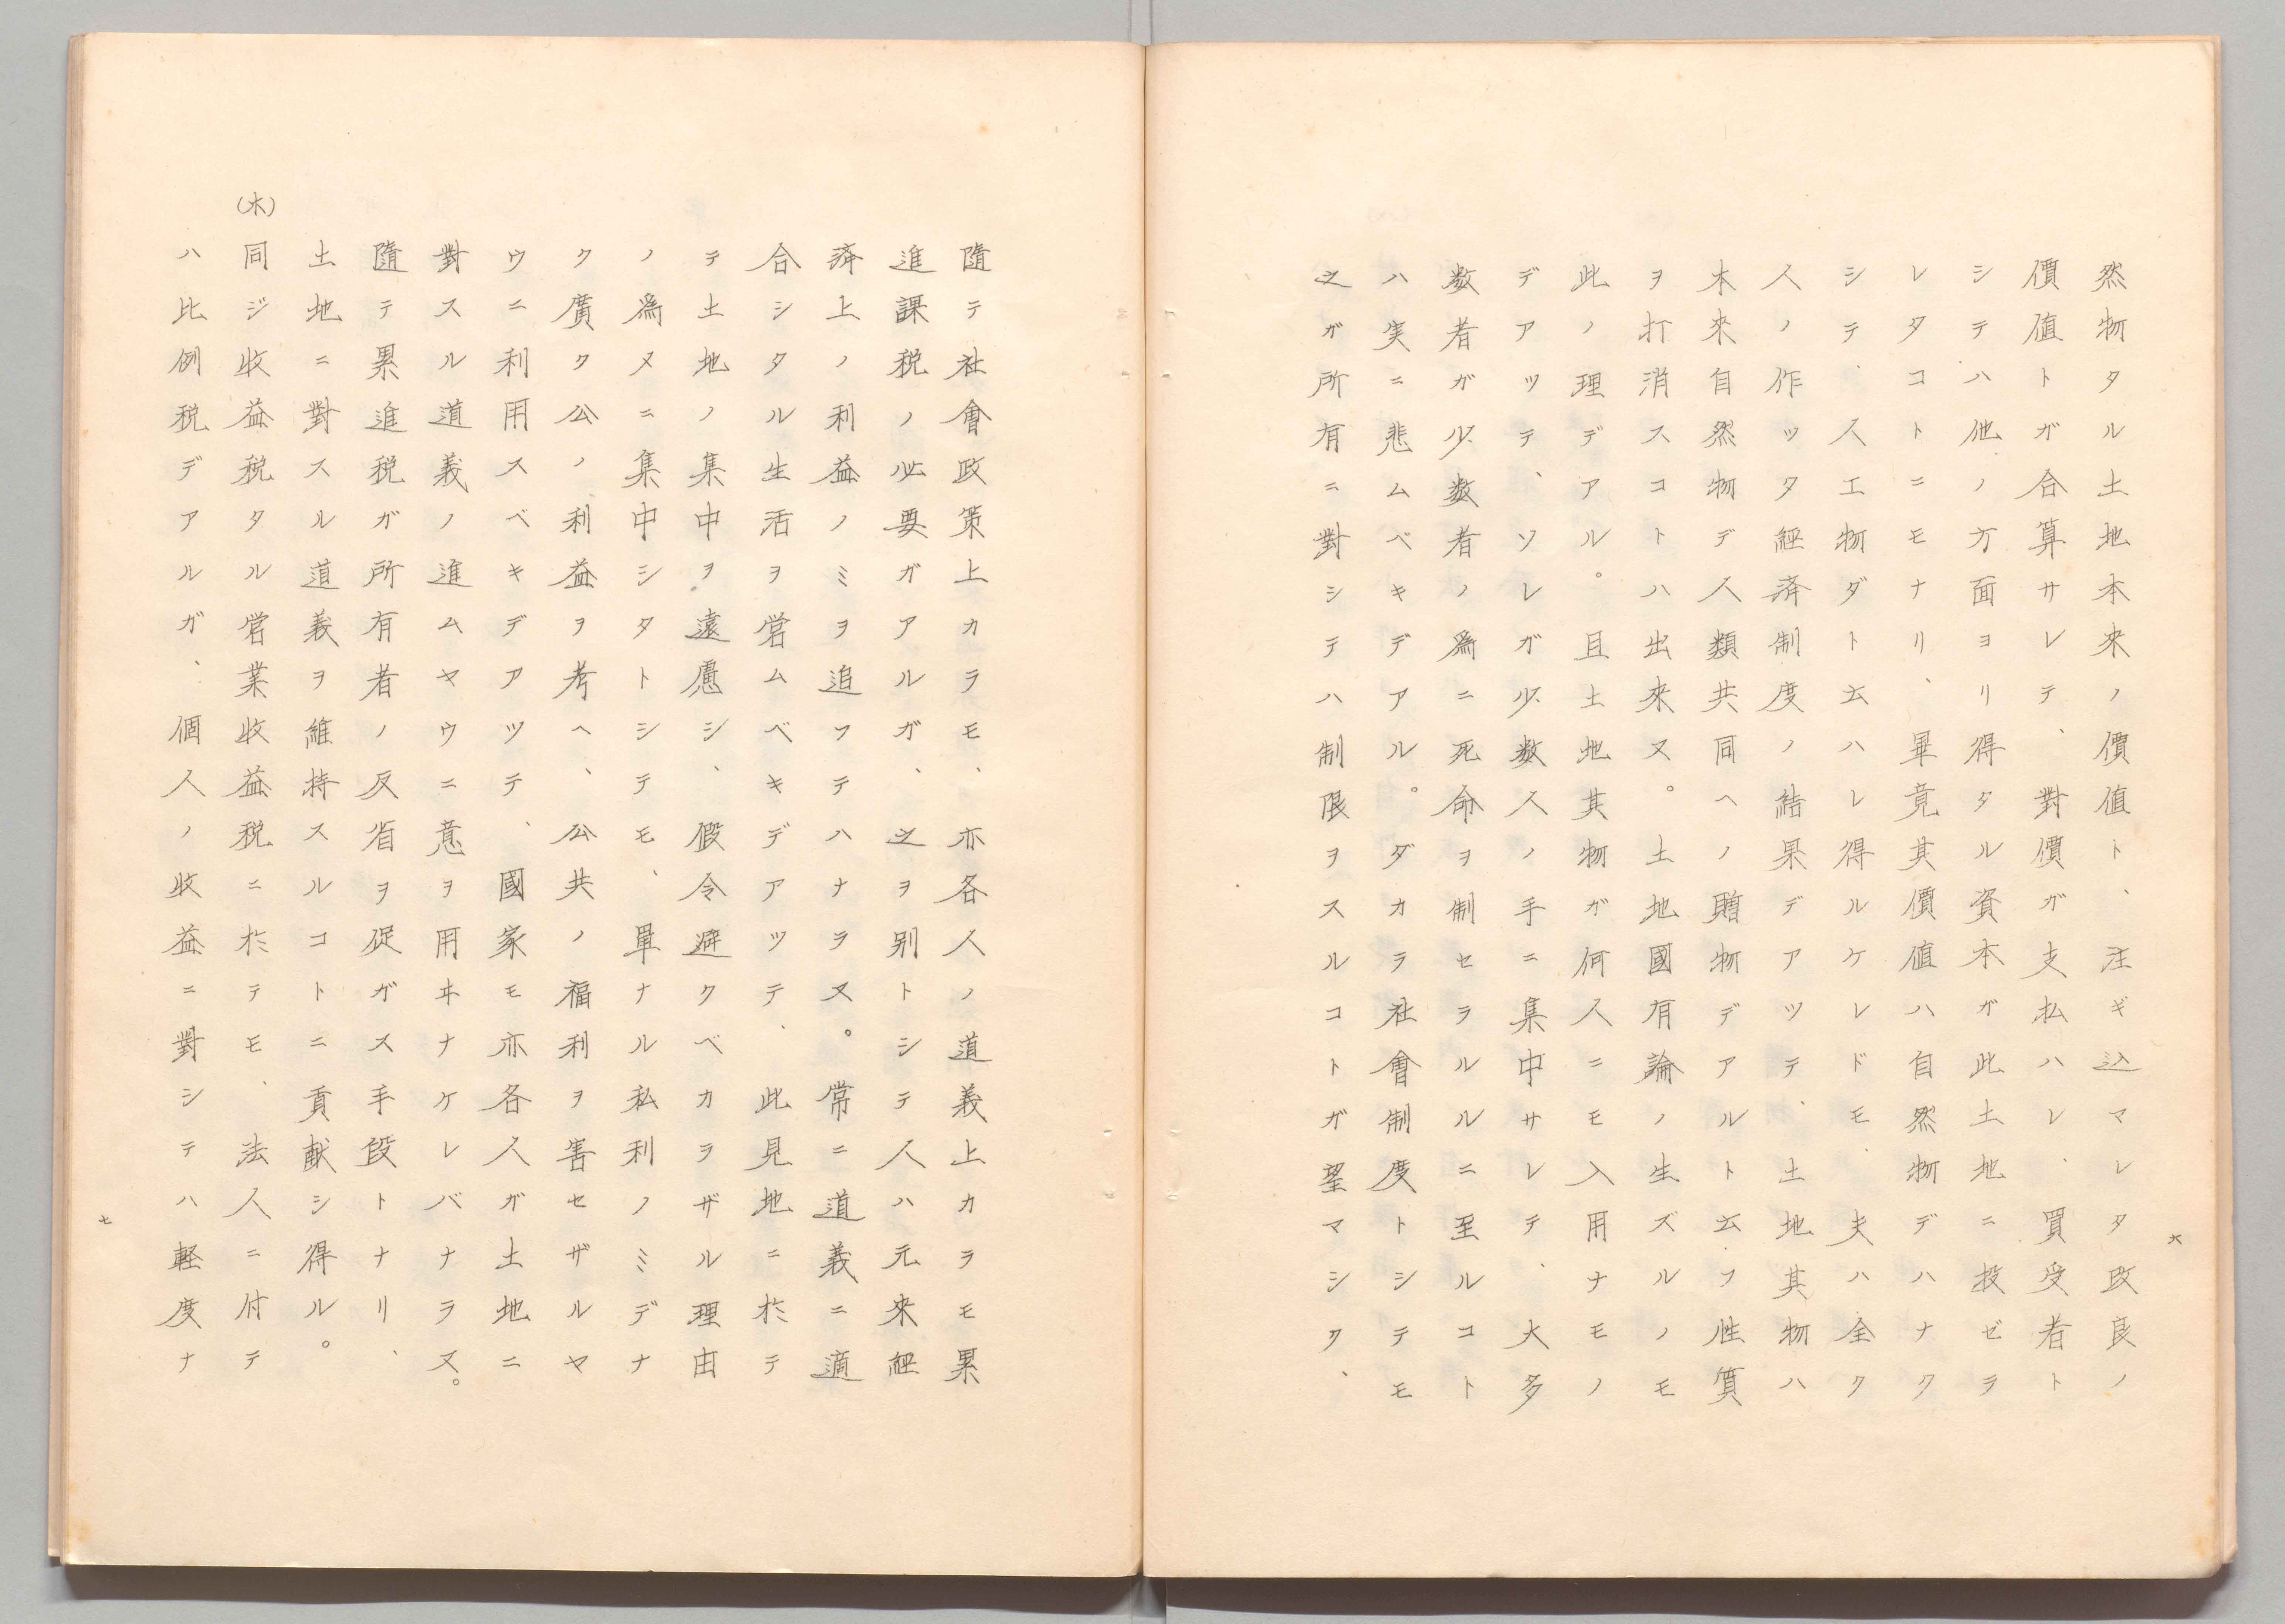 然物タル土地本来ノ價値ト、注ギ込マレタ改良ノ
價値トガ合算サレテ、對價ガ支払ハレ、買受者ト
シテハ他ノ方面ヨリ得タル資本ガ此土地ニ投ゼラ
レタコトニモナリ、畢竟其價値ハ自然物デハナク
シテ、人工物ダト云ハレ得ルケレドモ、夫ハ全ク
人ノ作ッタ経済制度ノ結果デアツテ、土地其物ハ
本來自然物デ人類共同ヘノ贈物デアルト云フ性質
ヲ打消スコトハ出來ヌ。土地國有論ノ生ズルノモ
此ノ理デアル。且土地其物ガ何人ニモ入用ナモノ
デアッテ、ソレガ少数人ノ手ニ集中サレテ、大多
数者ガ少数者ノ為ニ死命ヲ制セラルルニ至ルコト
ハ実ニ悲ムベキデアル。ダカラ社會制度トシテモ
之ガ所有ニ對シテハ制限ヲスルコトガ望マシク、
六
隨テ社會政策上カラモ、亦各人ノ道義上カラモ累
進課税ノ必要ガアルガ、之ヲ別トシテ人ハ元来経
済上ノ利益ノミヲ追フテハナラヌ。常ニ道義ニ適
合シタル生活ヲ営ムベキデアツテ、此見地ニ於テ
テ土地ノ集中ヲ遠慮シ、假令避クベカラザル理由
ノ為メニ集中シタトシテモ、單ナル私利ノミデナ
ク廣ク公ノ利益ヲ考ヘ、公共ノ福利ヲ害セザルヤ
ウニ利用スベキデアツテ、國家モ亦各人ガ土地ニ
對スル道義ノ進ムヤウニ意ヲ用ヰナケレバナラヌ。
隨テ累進税ガ所有者ノ反省ヲ促ガス手段トナリ、
土地ニ對スル道義ヲ維持スルコトニ貢献シ得ル。
(木)
同ジ收益税タル営業收益税ニ於テモ、法人ニ付テ
ハ比例税デアルガ、個人ノ收益ニ對シテハ軽度ナ
七